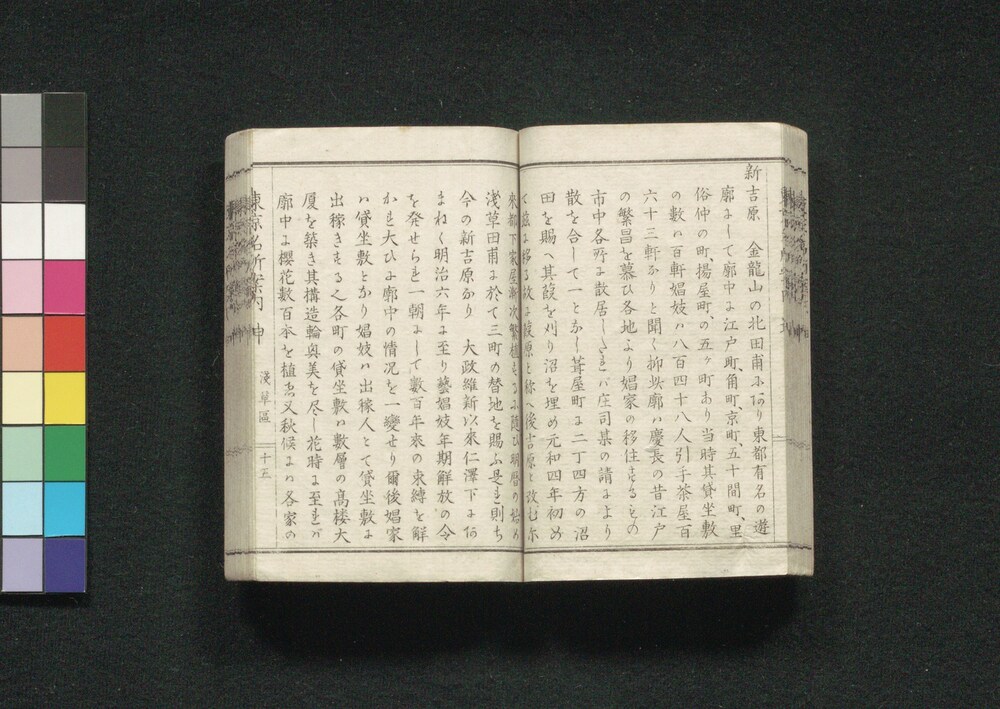 新吉原　金龍山の北田甫にあり東都有名の遊
廓にして廓中に江戸町、角町、京町、五十間町、里
俗仲の町、揚屋町、の五ヶ町あり当時其貸坐敷
の数ハ百軒娼妓ハ八百四十八人引手茶屋百
六十三軒なりと聞く抑此廓ハ慶長の昔江戸
の繁昌を慕ひ各地より娼家の移住するもの
市中各所に散居したれバ庄司某の請により
散を合して一となし葺屋町に二丁四方の沼
田を賜へ其葭を刈り沼を埋め元和四年初め
て茲に移る故に葭原と称へ後吉原と改む尓
来都下家屋漸次繁植するに随ひ明暦の始め
浅草田甫に於て三町の替地を賜ふ是れ則ち
今の新吉原なり　大政維新以來仁澤下にあ
まねく明治六年に至り藝娼妓年期解放の令
を発せられ一朝にして數百年来の束縛を解
かれ大ひに廓中の情況を一變せり爾後娼家
ハ貸坐敷となり娼妓ハ出稼人とて貸坐敷に
出稼きする之各町の貸坐敷ハ數層の高楼大
厦を築き其構造輪奐美を尽し花時に至れバ
廓中に櫻花数百本を植る又秋候にハ各家の
東京名所案内　坤
淺草區
十五